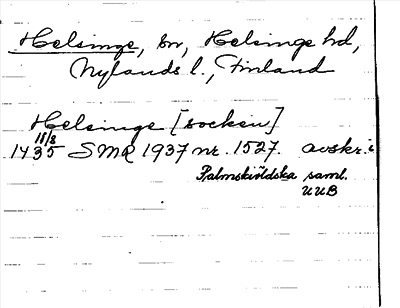 Helsinge, sn, Helsinge hd,
Nylands l., Finland
Helsinge [socken]
18/8
1435 SMR 1937 nr. 1527. avskr. i
Palmskiöldska saml.
UUB